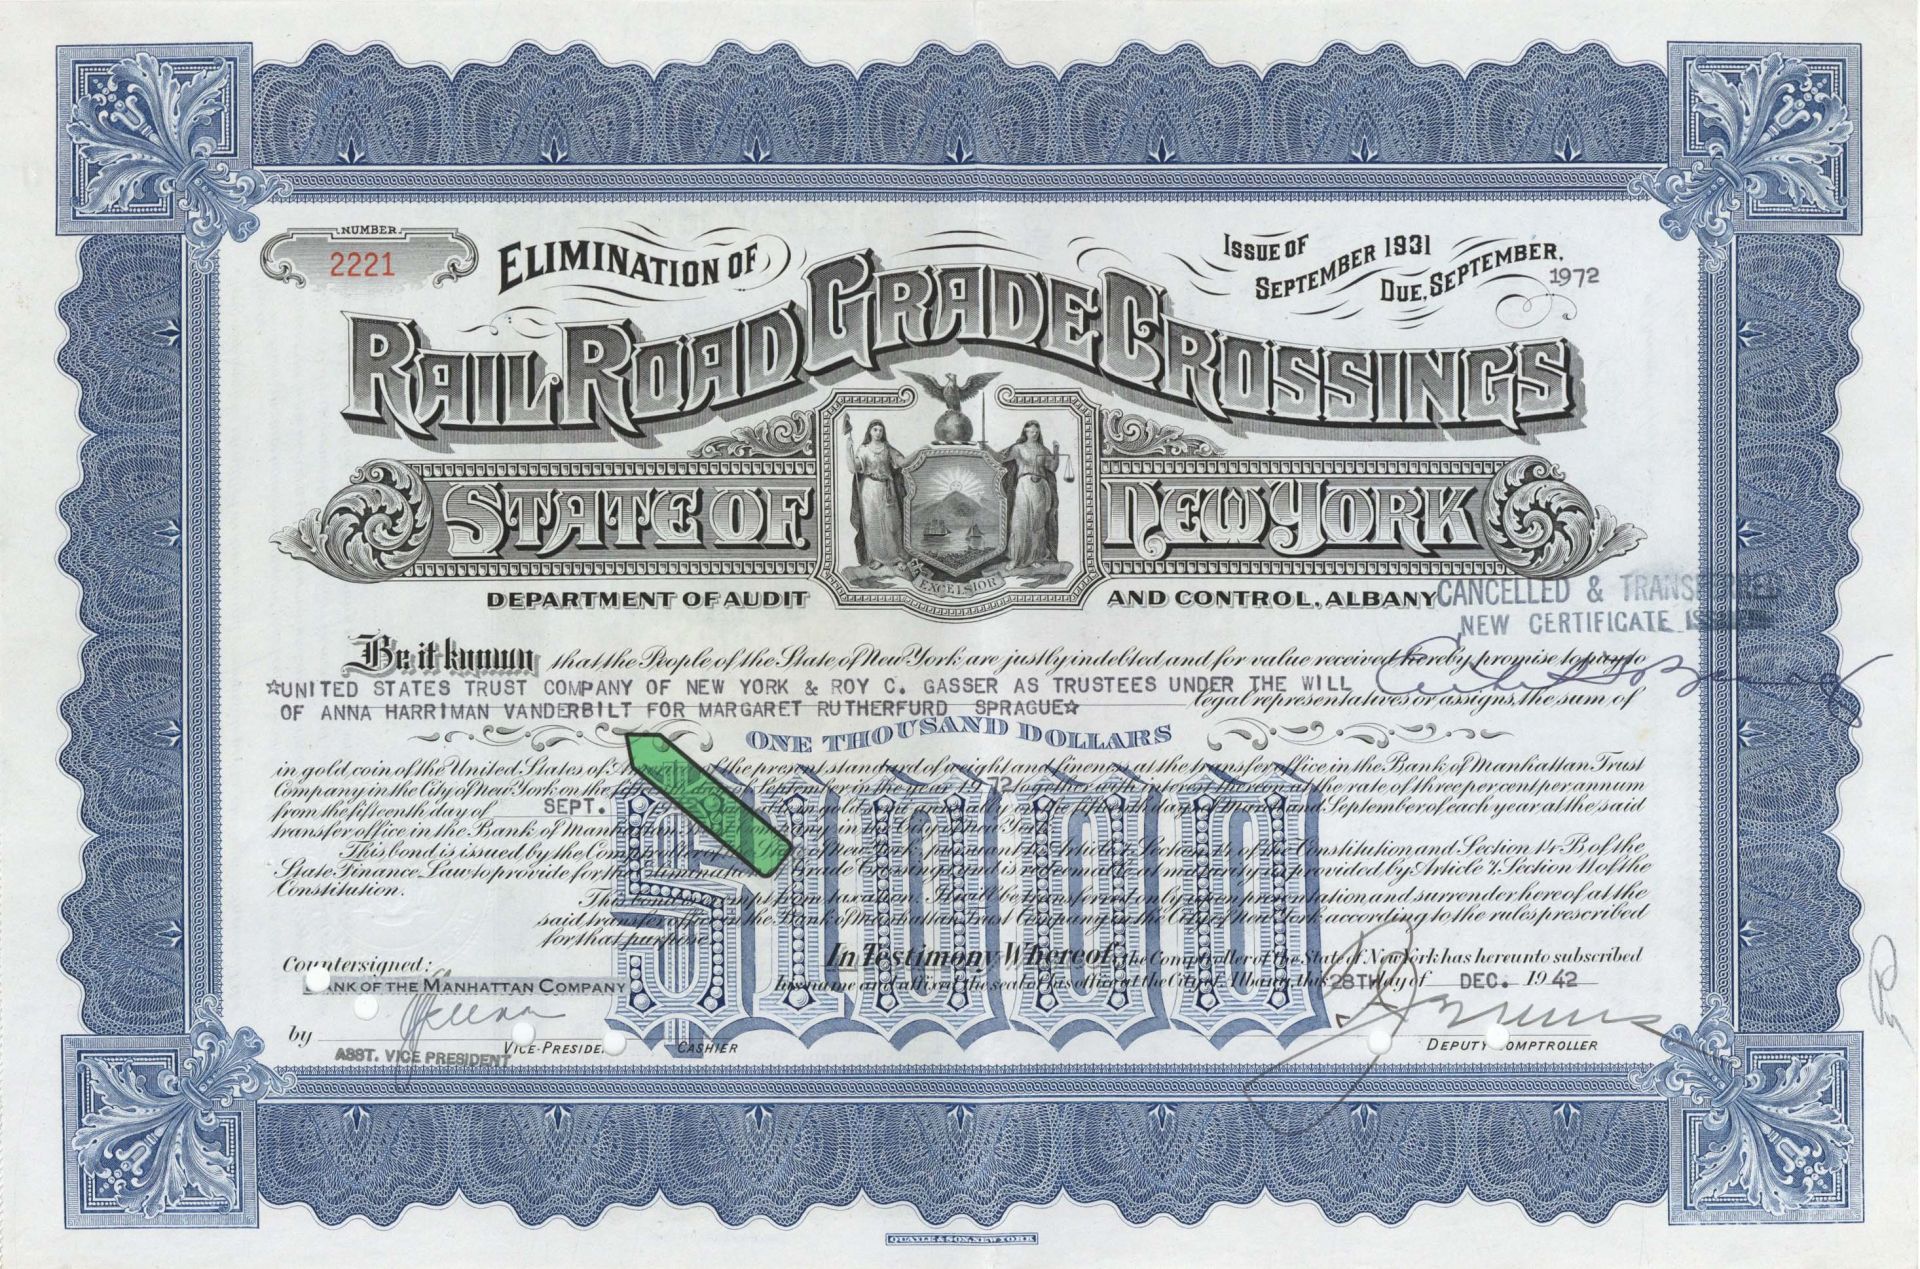 NUMBER
2221
ELIMINATION OF
ISSUE OF
SEPTEMBER 1931
DUE, SEPTEMBER,
1972
RAIL ROAD GRADE CROSSINGS
STATE OF NEW YORK
EXCELSIOR
DEPARTMENT OF AUDIT AND CONTROL, ALBANY
CANCELLED & TRANSFERRED
NEW CERTIFICATE ISSUED
Be it known that the People of the State of New York are justly indebted and for value received hereby promise to pay to
☆UNITED STATES TRUST COMPANY OF NEW YORK & ROY C. GASSER AS TRUSTEES UNDER THE WILL
OF ANNA HARRIMAN VANDERBILT FOR MARGARET RUTHERFURD SPRAGUE☆ legal representatives or assigns, the sum of
ONE THOUSAND DOLLARS
in gold coin of the United States of America of the present standard of weight and fineness at the transfer office in the Bank of Manhattan Trust
Company in the City of New York on the fifteenth day of September in the year 1972 together with interest thereon at the rate of three per cent per annum
from the fifteenth day of SEPT. in like gold coin on the fifteenth days of March and September of each year at the said
transfer office in the Bank of Manhattan Trust Company in the City of New York.
This bond is issued by the Comptroller of the State of New York pursuant to Article 7, Section 14 of the Constitution and Section 14-B of the
State Finance Law to provide for the elimination of Grade Crossings and is redeemable at maturity as provided by Article 7, Section 11 of the
Constitution.
$1000
The bond is exempt from taxation. It shall be transferred only upon presentation and surrender hereof at the
said transfer office in the Bank of Manhattan Trust Company in the City of New York according to the rules prescribed
for that purpose.
In Testimony Whereof, the Comptroller of the State of New York has hereunto subscribed
his name and affixed the seal of his office at the City of Albany, this 28TH day of DEC. 1942
Countersigned:
BANK OF THE MANHATTAN COMPANY
by
ASST. VICE PRESIDENT
VICE-PRESIDENT CASHIER
DEPUTY COMPTROLLER
QUAYLE & SON, NEW YORK